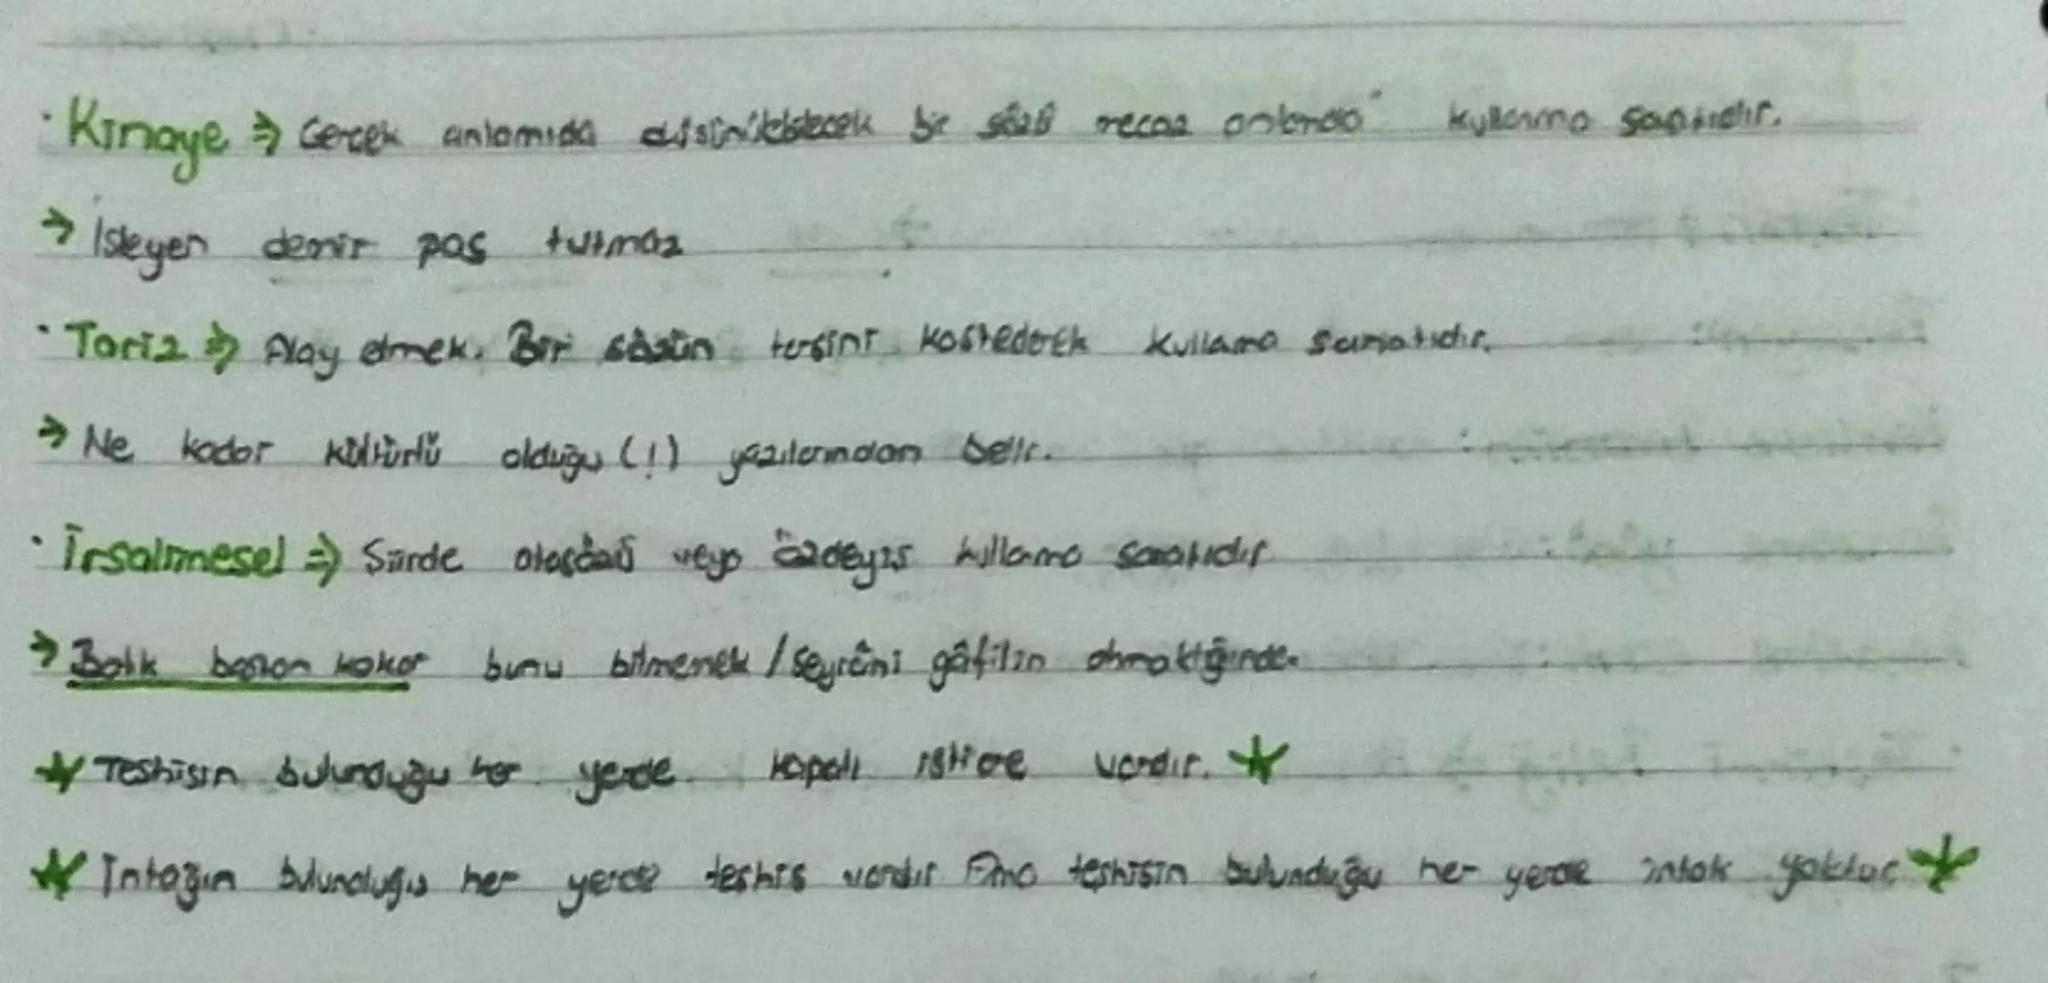 · Kinaye ⇒ Gerçek anlamıda düşünülebilecek bir sözü mecaz anlamda kullanma sanatıdır.
→ İşleyen demir pas tutmaz
· Tariz ⇒ Alay etmek. Bir sözün tersini kastederek kullama sanatıdır.
→ Ne kadar kültürlü olduğu (!) yazılarından belli.
· İrsalimesel ⇒ Şiirde atasözü veya özdeyiş kullama sanatıdır
→ Balık baştan kokar bunu bilmemek / Seyrâni gâfilin ahmaklığında.
★ Teşhisin bulunduğu her yerde kapalı istiare vardır. ★
★ İntağın bulunduğu her yerde teşhis vardır Ama teşhisin bulunduğu her yerde intak yoktur ★